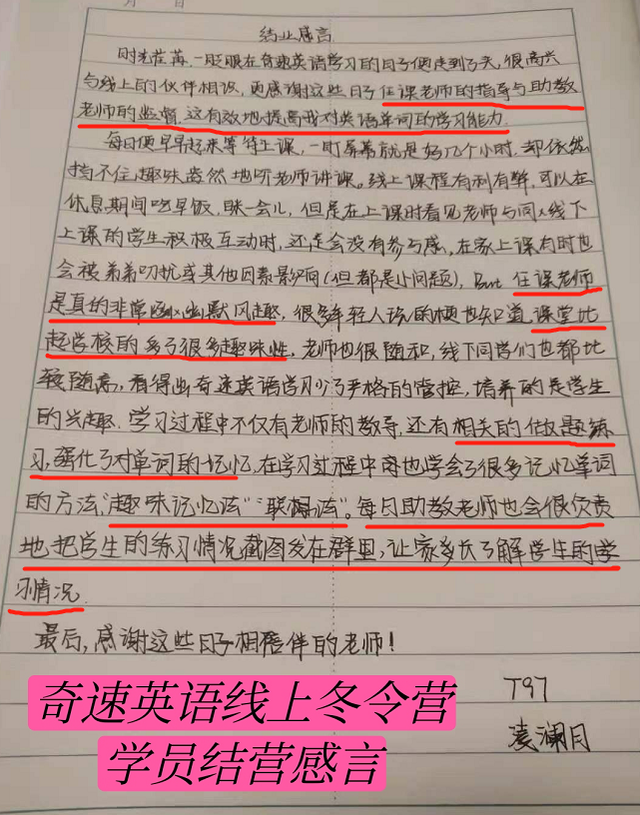 月 日
结业感言
时光荏苒,一眨眼在奇速英语学习的日子便走到了头,很高兴
与线上的伙伴相识,更感谢这些日子任课老师的指导与助教
老师的监督,这有效地提高我对英语单词的学习能力
每日便早早起来等待上课,一盯屏幕就是好几个小时,却依然
挡不住趣味盎然地听老师讲课。线上课程有利有弊,可以在
休息期间吃早饭,眯一会儿,但是在上课时看见老师与同线下
上课的学生积极互动时,还是会没有参与感,在家上课有时也
会被弟弟叨扰或其他因素影响(但都是小问题),But 任课老师
是真的非常幽默风趣,很多年轻人玩的梗也知道,课堂比
起学校的多了很多趣味性,老师也很随和,线下同学们也都比
较随意,看得出奇速英语学习少了严格的管控,培养的是学生
的兴趣.学习过程中不仅有老师的教导,还有相关的做题练
习,强化了对单词的记忆,在学习过程中也学会了很多记忆单词
的方法"趣味记忆法""联想法"。每日助教老师也会很负责
地把学生的练习情况截图发在群里,让家长了解学生的学
习情况.
最后,感谢这些日子相陪伴的老师!
T97
凌澜月
奇速英语线上冬令营
学员结营感言